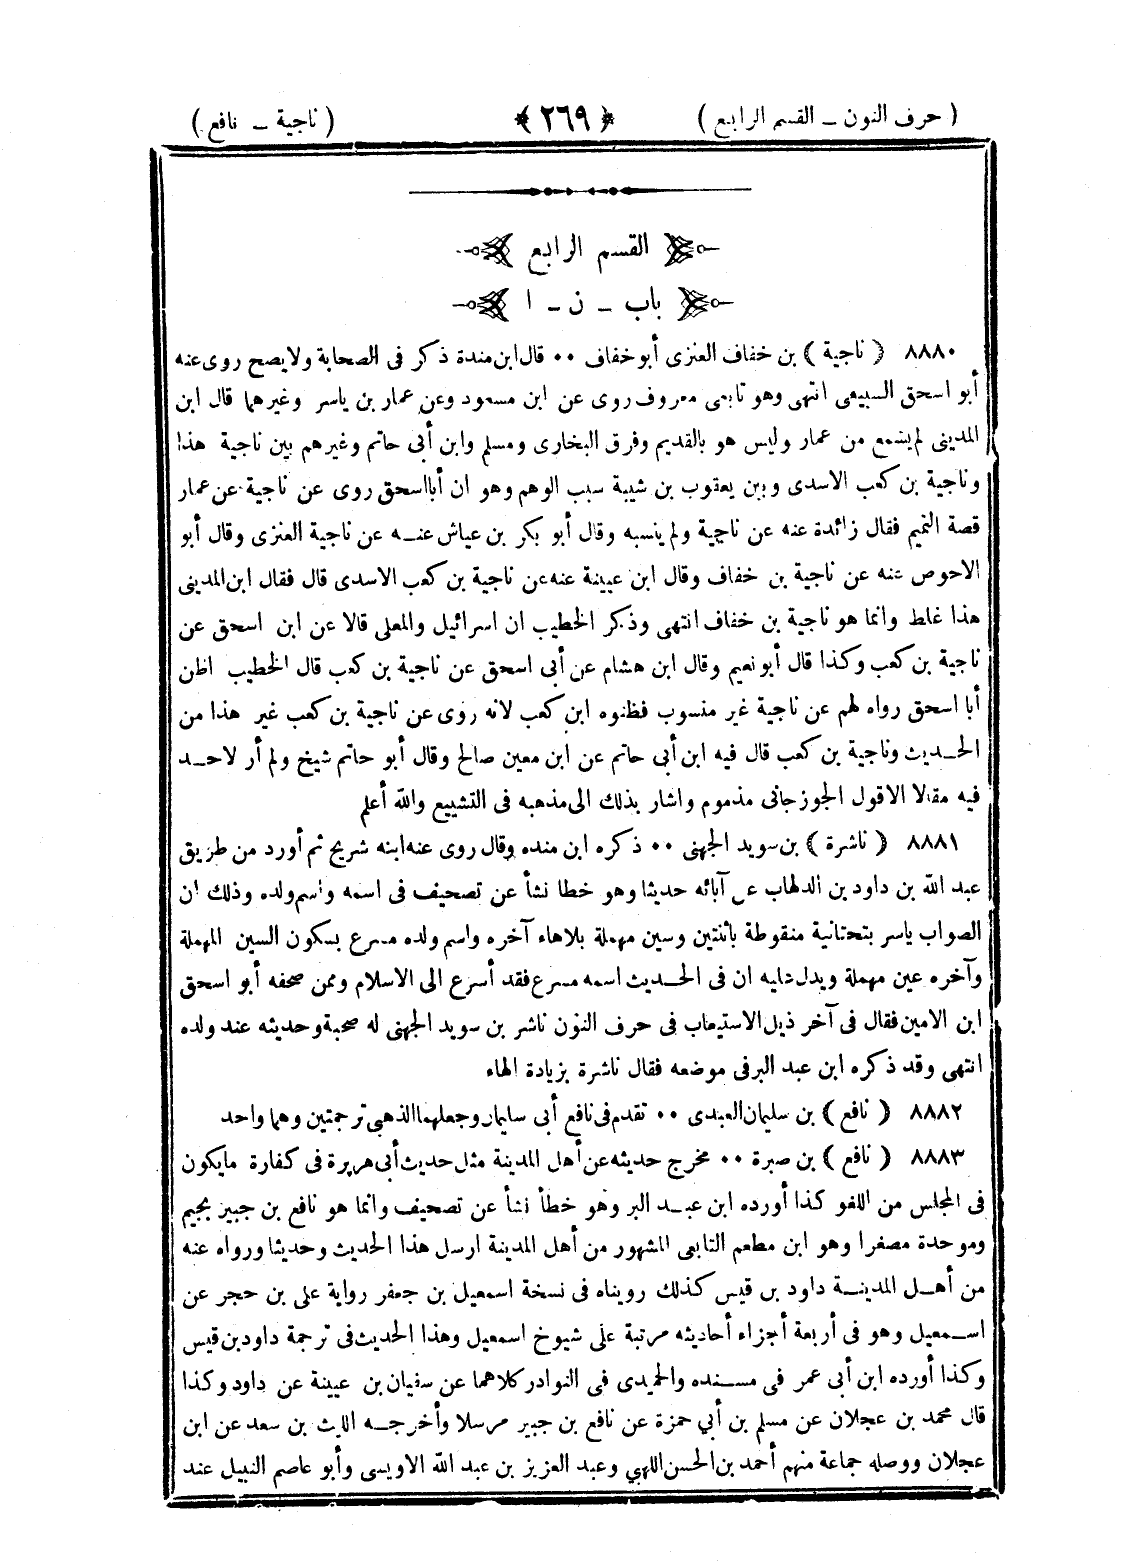 ( حرف النون ــ القسم الرابع ) ﴿ ٢٦٩ ﴾ ( ناجية ــ نافع )
القسم الرابع
باب ــ ن ــ ا
٨٨٨٠ ( ناجية ) بن خفاف العنزى أبو خفاف ٠٠ قال ابن مندة ذكر فى الصحابة ولا يصح روى عنه
أبو اسحق السبيعى انتهى وهو تابعى معروف روى عن ابن مسعود وعن عمار بن ياسر وغيرهما قال ابن
المدينى لم يسمع من عمار وليس هو بالقديم وفرق البخارى ومسلم وابن أبى حاتم وغيرهم بين ناجية هذا
وناجية بن كعب الاسدى وبين يعقوب بن شيبة سبب الوهم وهو ان أبا اسحق روى عن ناجية عن عمار
قصة التميم فقال زائدة عنه عن ناجية ولم ينسبه وقال أبو بكر بن عياش عنــه عن ناجية العنزى وقال أبو
الاحوص عنه عن ناجية بن خفاف وقال ابن عيينة عنه عن ناجية بن كعب الاسدى قال فقال ابن المدينى
هذا غلط وانما هو ناجية بن خفاف انتهى وذكر الخطيب ان اسرائيل والمعلى قالا عن ابن اسحق عن
ناجية بن كعب وكذا قال أبو نعيم وقال ابن هشام عن أبى اسحق عن ناجية بن كعب قال الخطيب اظن
أبا اسحق رواه لهم عن ناجية غير منسوب فظنوه ابن كعب لانه روى عن ناجية بن كعب غير هذا من
الحــديث وناجية بن كعب قال فيه ابن أبى حاتم عن ابن معين صالح وقال أبو حاتم شيخ ولم أر لاحــد
فيه مقالا الا قول الجوزجانى مذموم واشار بذلك الى مذهبه فى التشييع والله أعلم
٨٨٨١ ( ناشرة ) بن سويد الجهنى ٠٠ ذكره ابن منده وقال روى عنه ابنه شريح ثم أورد من طريق
عبد الله بن داود بن الدلهاب عن آبائه حديثا وهو خطا نشأ عن تصحيف فى اسمه واسم ولده وذلك ان
الصواب ياسر بتحتانية منقوطة باثنتين وسين مهملة بلا هاء آخره واسم ولده مسرع بسكون السين المهملة
وآخره عين مهملة ويدل عليه ان فى الحــديث اسمه مسرع فقد أسرع الى الاسلام وممن صحفه أبو اسحق
ابن الامين فقال فى آخر ذيل الاستيعاب فى حرف النون ناشر بن سويد الجهنى له صحبة وحديثه عند ولده
انتهى وقد ذكره ابن عبد البر فى موضعه فقال ناشرة بزيادة الهاء
٨٨٨٢ ( نافع ) بن سليمان العبدى ٠٠ تقدم فى نافع أبى سليمان وجعلهما الذهبى ترجمتين وهما واحد
٨٨٨٣ ( نافع ) بن صبرة ٠٠ مخرج حديثه عن أهل المدينة مثل حديث أبى هريرة فى كفارة ما يكون
فى المجلس من اللغو كذا أورده ابن عبــد البر وهو خطأ نشأ عن تصحيف وانما هو نافع بن جبير بجيم
وموحدة مصغرا وهو ابن مطعم التابعى المشهور من أهل المدينة ارسل هذا الحديث وحديثا ورواه عنه
من أهــل المدينــة داود بن قيس كذلك رويناه فى نسخة اسمعيل بن جعفر رواية على بن حجر عن
اســمعيل وهو فى أربعة أجزاء أحاديثه مرتبة على شيوخ اسمعيل وهذا الحديث فى ترجمة داود بن قيس
وكذا أورده ابن أبى عمر فى مســنده والحميدى فى النوادر كلاهما عن سفيان بن عيينة عن داود وكذا
قال محمد بن عجلان عن مسلم بن أبي حمزة عن نافع بن جبير مرسلا وأخرجــه الليث بن سعد عن ابن
عجلان ووصله جماعة منهم أحمد بن الحسن اللهبي وعبد العزيز بن عبد الله الاويسى وأبو عاصم النبيل عند